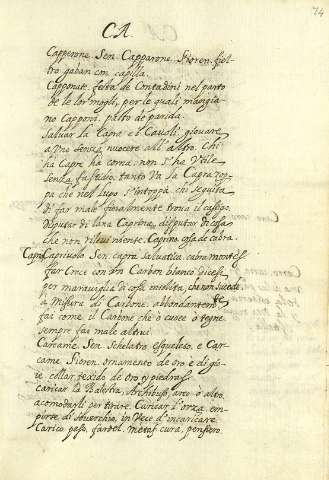 74
CA
Capperone. Sen. Capparone. Fioren. fiel-
tro. gaban con capilla.
Capponate. festa de Contadini nel parto
de le lor mogli, per le quali mangia
no Capponi. pasto de parida.
Saluar la Capra e i Cauoli. giouare
a uno senza nuocere all' altro. Chi
ha Capre ha corna. non s' ha Vtile
senza fastidio. tanto Va la Capra zop
pa che nel lupo s' intoppa. chi seguita
di far male finalmente troua il castigo.
Disputar di lana Caprina. disputar di cosa
che non rileui niente. Caprino cosa de cabra.
Capricuolo Sen. capra saluatica. cabra montes
far Croce con un Carbon bianco dicesi
per marauiglia di cosa insolita, che non succede
a Misura di Carbone. abbondantem.
fai come il Carbone che o cuoce o tegne
sempre fai male altrui.
Carcame. Sen. Scheletro. esqueleto. e Car-
came. Fioren. ornamento de oro e di gio-
ie. collar texido de oro y piedras
Caricar la Balestra, Archibuso, arco o altro.
acomodarli per tirare. Caricar l' orza em-
pirsi di souerchio, in Vece d' incaricare
Carico peso, fardel. metaf. cura, pensiero.